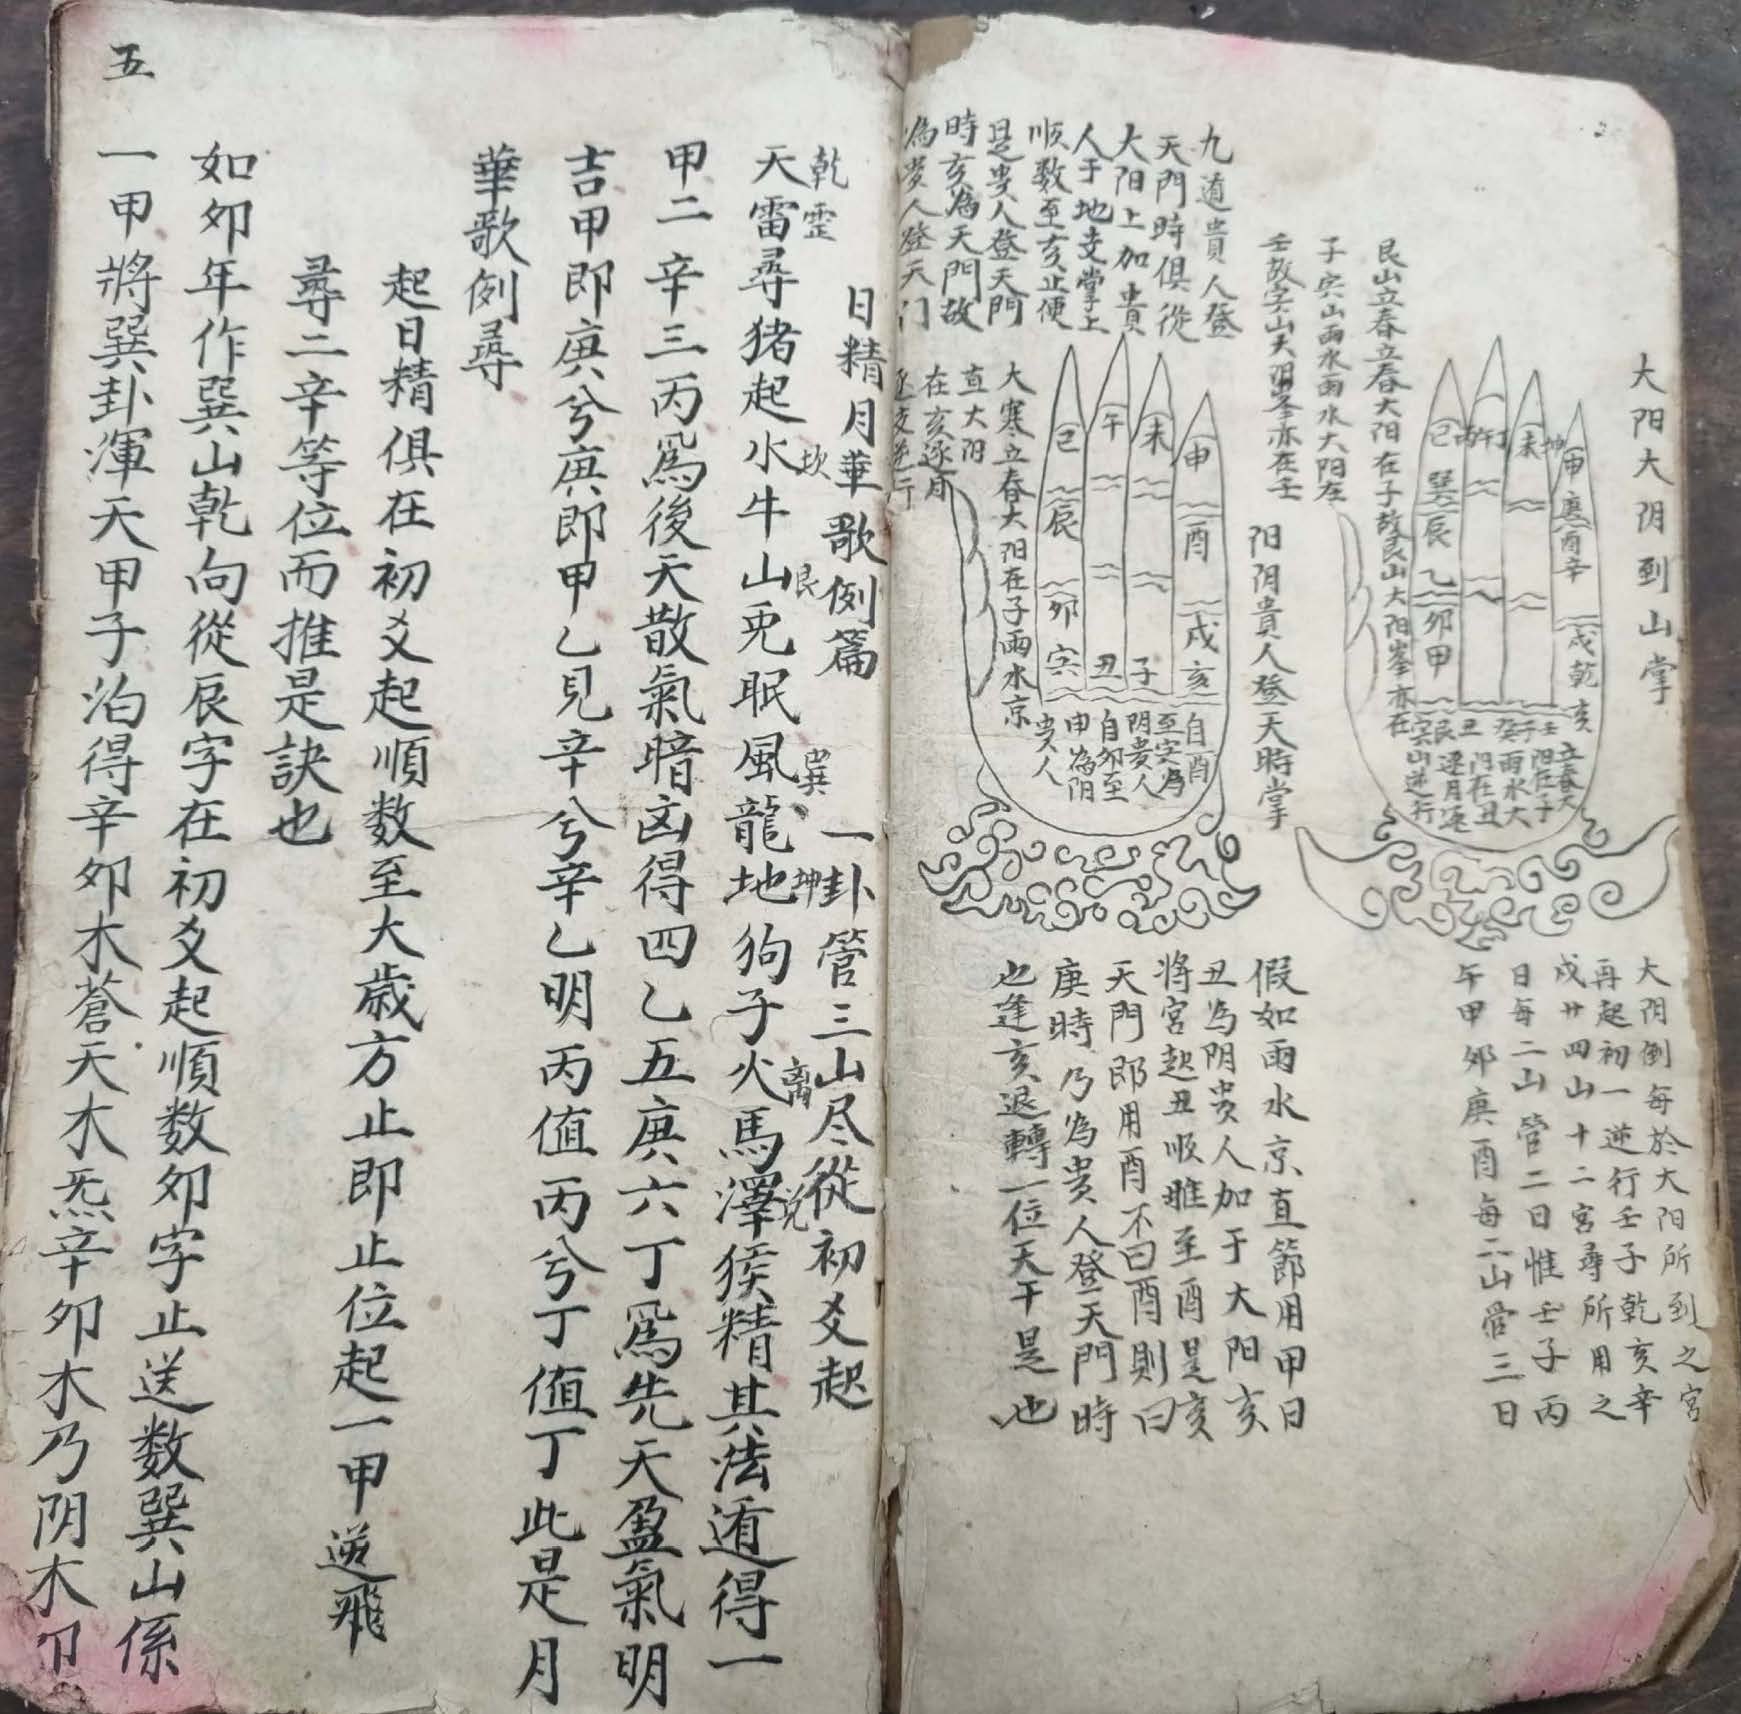 大阳大阴到山掌
艮山立春立春大阳在子故艮山大阳峯亦在
子宾山雨水雨水大阳在
壬故宾山大阳峯亦在壬
巳 丙午丁 未坤 申庚酉辛
巽辰乙卯甲
戌乾亥
壬子癸丑艮
立春大
阳在子
雨水大
阳在丑
逐月逐
山逆行
大阴倒每於大阳所到之宮
再起初一逆行壬子乾亥辛
戌廿四山十二宮尋所用之
日每二山管二日惟壬子丙
午甲卯庚酉每二山管三日
阳阴貴人登天時掌
九道貴人登
天門時俱從
大阳上加貴
人于地支掌上
順数至亥止便
是贵人登天門
時亥為天門故
為贵人登天门
巳 午 未 申
辰 酉
卯 戌
宾 丑 子 亥
自酉
至宾為
阴贵人
自卯至
申為阴
贵人
大寒立春大阳在子雨水京
直大阳
在亥逐月
逐支逆行
假如雨水京直節用甲日
丑為阴贵人加于大阳亥
将宮起丑順雎至酉是亥
天門即用酉不曰酉則曰
庚時乃為贵人登天門時
也逢亥退轉一位天干是也
日精月華歌例篇 一卦管三山尽從初爻起
乾 䨓 坎 艮 巽 坤 離 兑
天雷尋猪起水牛山兎眠風龍地狗子火馬澤猴精其法遁得一
甲二辛三丙為後天散氣暗凶得四乙五庚六丁為先天盈氣明
吉甲即庚兮庚即甲乙見辛兮辛乙明丙值丙兮丁值丁此是月
華歌例尋
起日精俱在初爻起順数至大歳方止即止位起一甲逆飛
尋二辛等位而推是訣也
如夘年作巽山乾向從辰字在初爻起順数夘字止送数巽山係
一甲將巽卦渾天甲子泊得辛夘木蒼天木炁辛夘木乃阴木卩
五